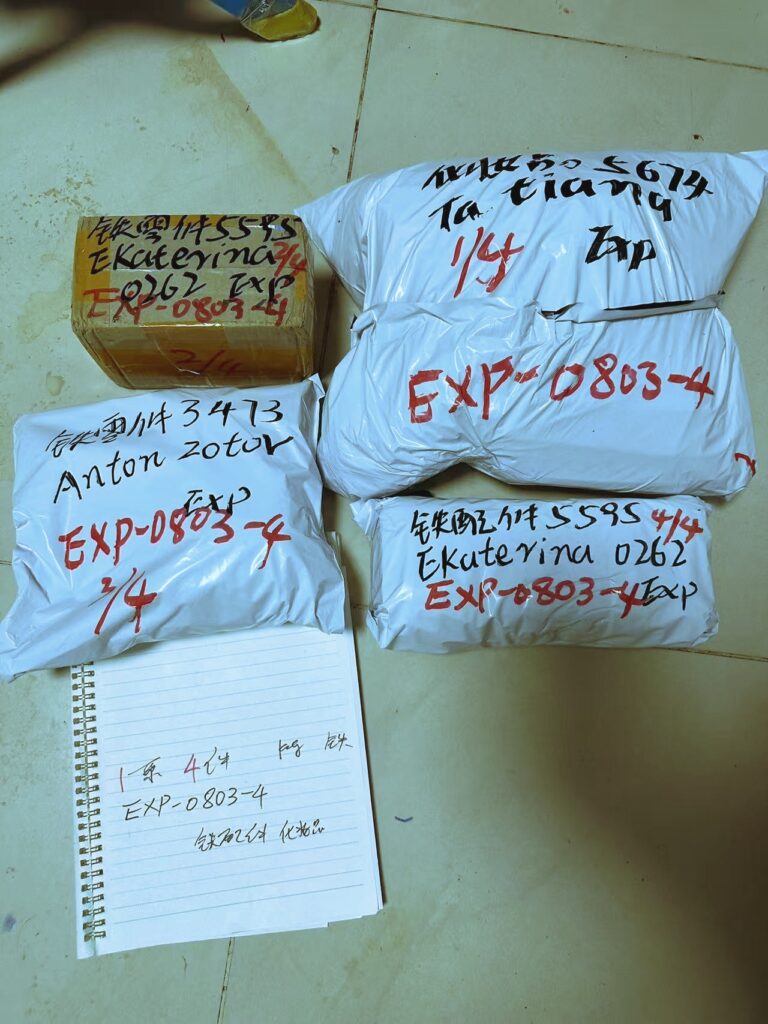 化妆品 5674
Tatiana
1/4 Exp
EXP-0803-4
铁零件5595
Ekaterina 2/4
0262 Exp
EXP-0803-4
2/4
铁零件3473
Anton Zotov
Exp
EXP-0803-4
铁配件5595 4/4
Ekaterina 0262
EXP-0803-4 Exp
1票 4件 kg 铁
EXP-0803-4
铁配件 化妆品